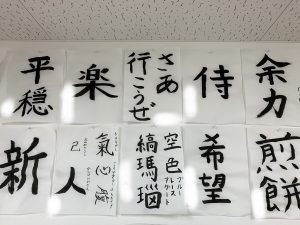 余力
侍
さあ
行こうぜ
楽
平穏
煎餅
希望
空色
ブルー
レース
アゲート
縞瑪瑙
人
新